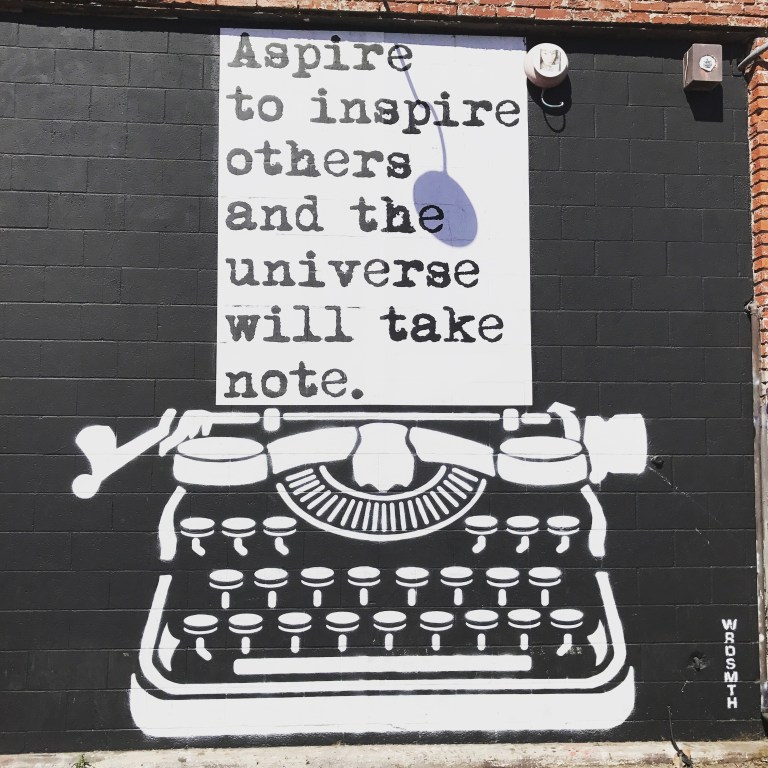 Aspire
to inspire
others
and the
universe
will take
note.
WRDSMTH